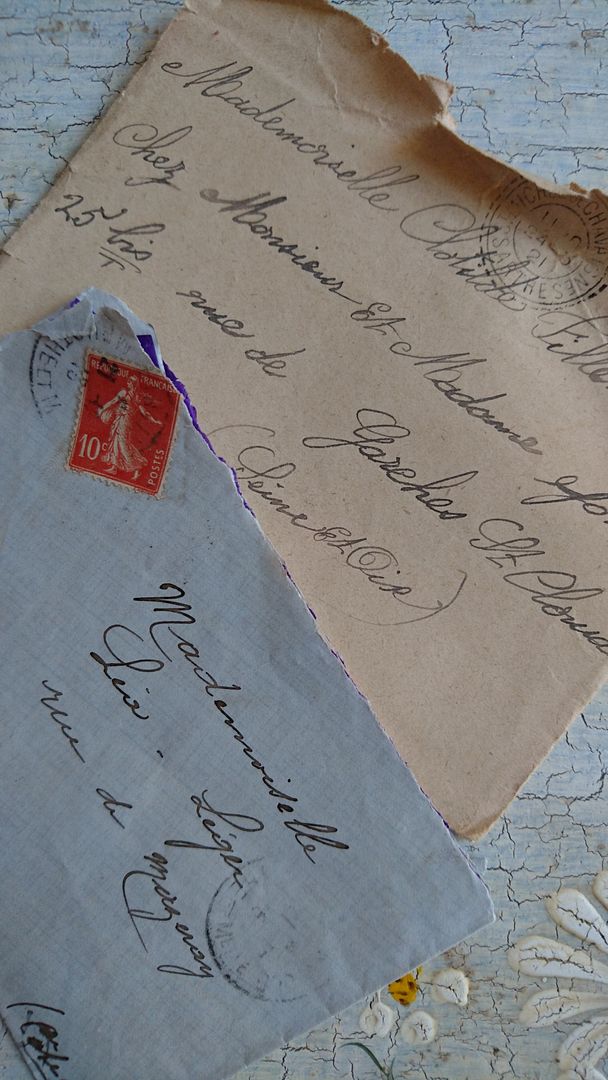 Mademoiselle Clotilde
Chez Monsieur Et Madame
25 bis rue de Garches St Clou
(Seine Et Oise)
REPUBLIQUE FRANÇAISE
10c
POSTES
Mademoiselle
Léa Léger
rue de Mazenay